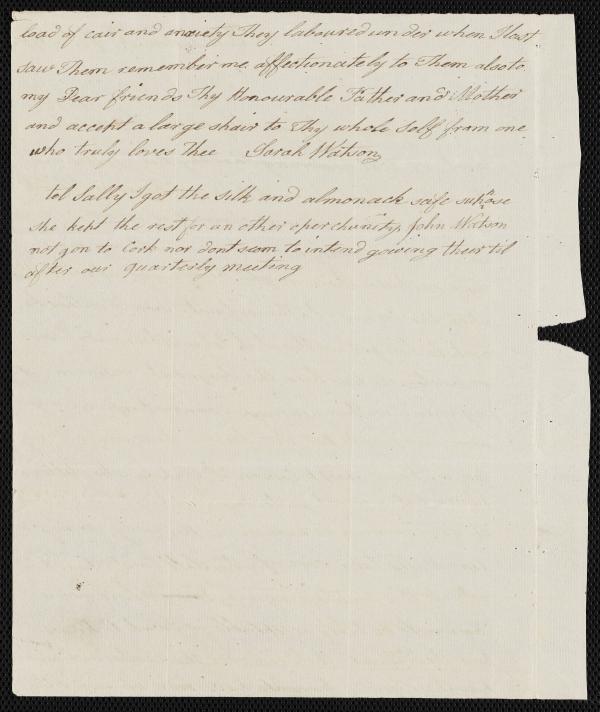 load of cair and anxiety They laboured under when I last
saw Them remember me affectionately to Them also to
my Dear friends Thy Honourable Father and Mother
and accept a large shair to Thy whole Self from one
who truly loves Thee Sarah Watson
tel Sally I got the silk and almonack safe supose
she kept the rest for an other operchunity, John Watson
not gon to Cork nor dont seem to intend gowing their til
after our quarterly meeting